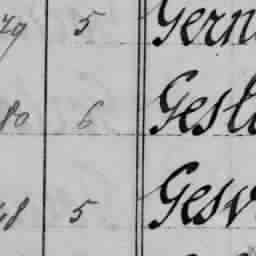 29 5 Gern
80 6 Gesl
48 5 Gesv